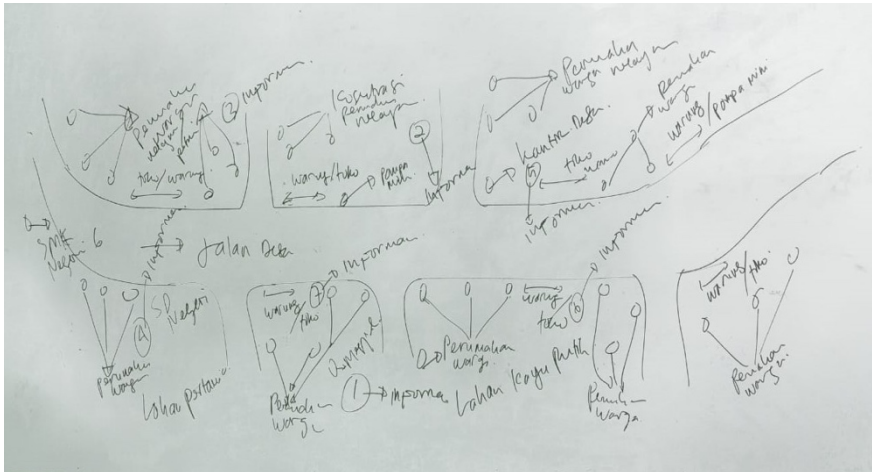 Perumahan
warga
nelayan
petani
3 Informan
toko/warung
Kosentrasi
Perumahan
nelayan
warung/toko
Pompa
mini
2
Informan
Perumahan
warga nelayan
Kantor Desa
5
Informan
toko
Perumahan
warga
warung/pompa mini
SMK
Negeri 6
Jalan Desa
Informan
SD
Negeri
4
Perumahan
warga
Lahan Pertanian
warung
toko
7 Informan
Perumahan
warga
1 Informan
Perumahan
warga
warung
toko
6
Informan
Lahan Kayu Putih
Perumahan
warga
warung/toko
Perumahan
warga